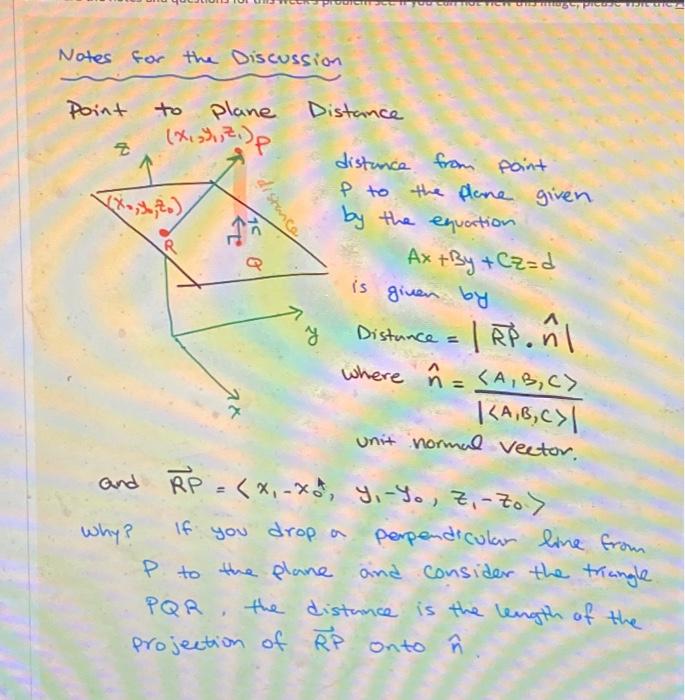 Notes for the Discussion
Point to plane Distance
(x₁,y₁,z₁) P
z
distance from point
P to the plane given
by the equation
(x₀,y₀,z₀)
distance
n
R
Q
Ax + By + Cz = d
is given by
y
Distance = | RP⃗ . n̂ |
where n̂ = <A,B,C>
|<A,B,C>|
x
unit normal vector.
and RP⃗ = < x₁-x₀, y₁-y₀, z₁-z₀ >
Why? If you drop a perpendicular line from
P to the plane and consider the triangle
PQR, the distance is the length of the
projection of RP⃗ onto n̂.